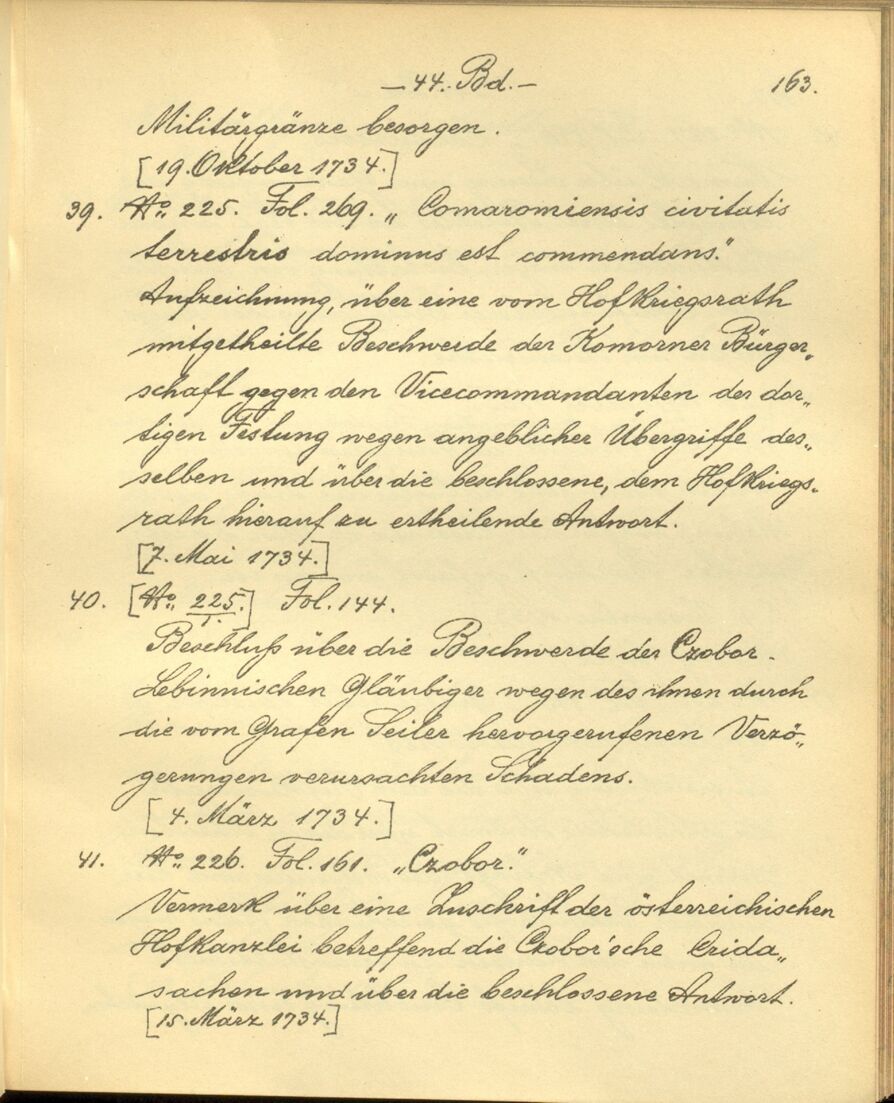 — 44. Bd. — 163.
Militärgränze besorgen.
[19. Oktober 1734.]
39. No. 225. Fol. 269. „Comaromiensis civitatis
terrestris dominus est commendans."
Aufzeichnung, über eine vom Hofkriegsrath
mitgetheilte Beschwerde der Komorner Bürger„
schaft gegen den Vicecommandanten der dor„
tigen Festung wegen angeblicher Übergriffe des„
selben und über die beschlossene, dem Hofkriegs„
rath hierauf zu ertheilende Antwort.
[7. Mai 1734.]
40. [No. 225./1.] Fol. 144.
Beschluß über die Beschwerde der Czobor-
Lebinnischen Gläubiger wegen des ihnen durch
die vom Grafen Seiler hervorgerufenen Verzö„
gerungen verursachten Schadens.
[4. März 1734.]
41. No. 226. Fol. 161. „Czobor."
Vermerk über eine Zuschrift der österreichischen
Hofkanzlei betreffend die Czobor'sche Crida„
sachen und über die beschlossene Antwort.
[15. März 1734.]